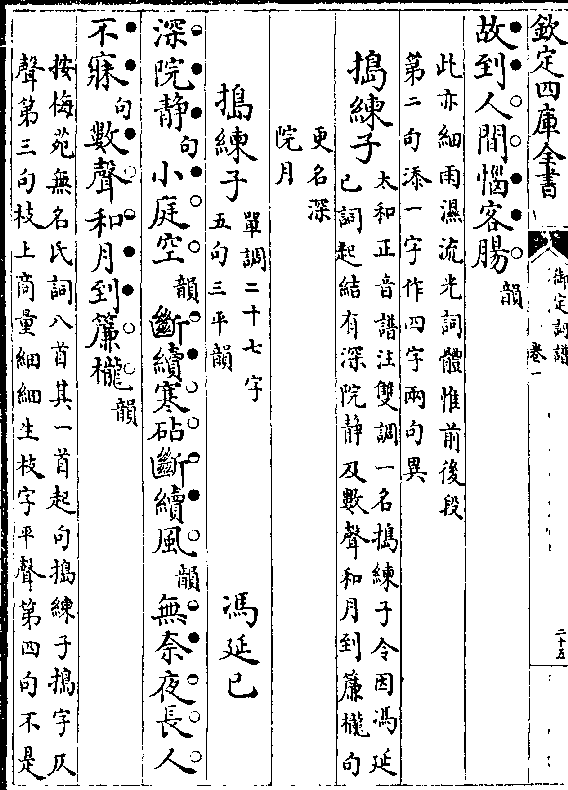 欽定四庫全書
御定詞譜
卷一
二十五
故到人間惱客腸韻
此亦細雨濕流光詞體惟前後段
第二句添一字作四字兩句異
搗練子
太和正音譜注雙調一名搗練子令因馮延
巳詞起結有深院靜及數聲和月到簾櫳句
更名深
院月
搗練子
單調二十七字
五句三平韻
馮延巳
深院靜句小庭空韻斷續寒砧斷續風韻無奈夜長人
不寐句數聲和月到簾櫳韻
按梅苑無名氏詞八首其一首起句搗練子搗字仄
聲第三句枝上商量細細生枝字平聲第四句不是